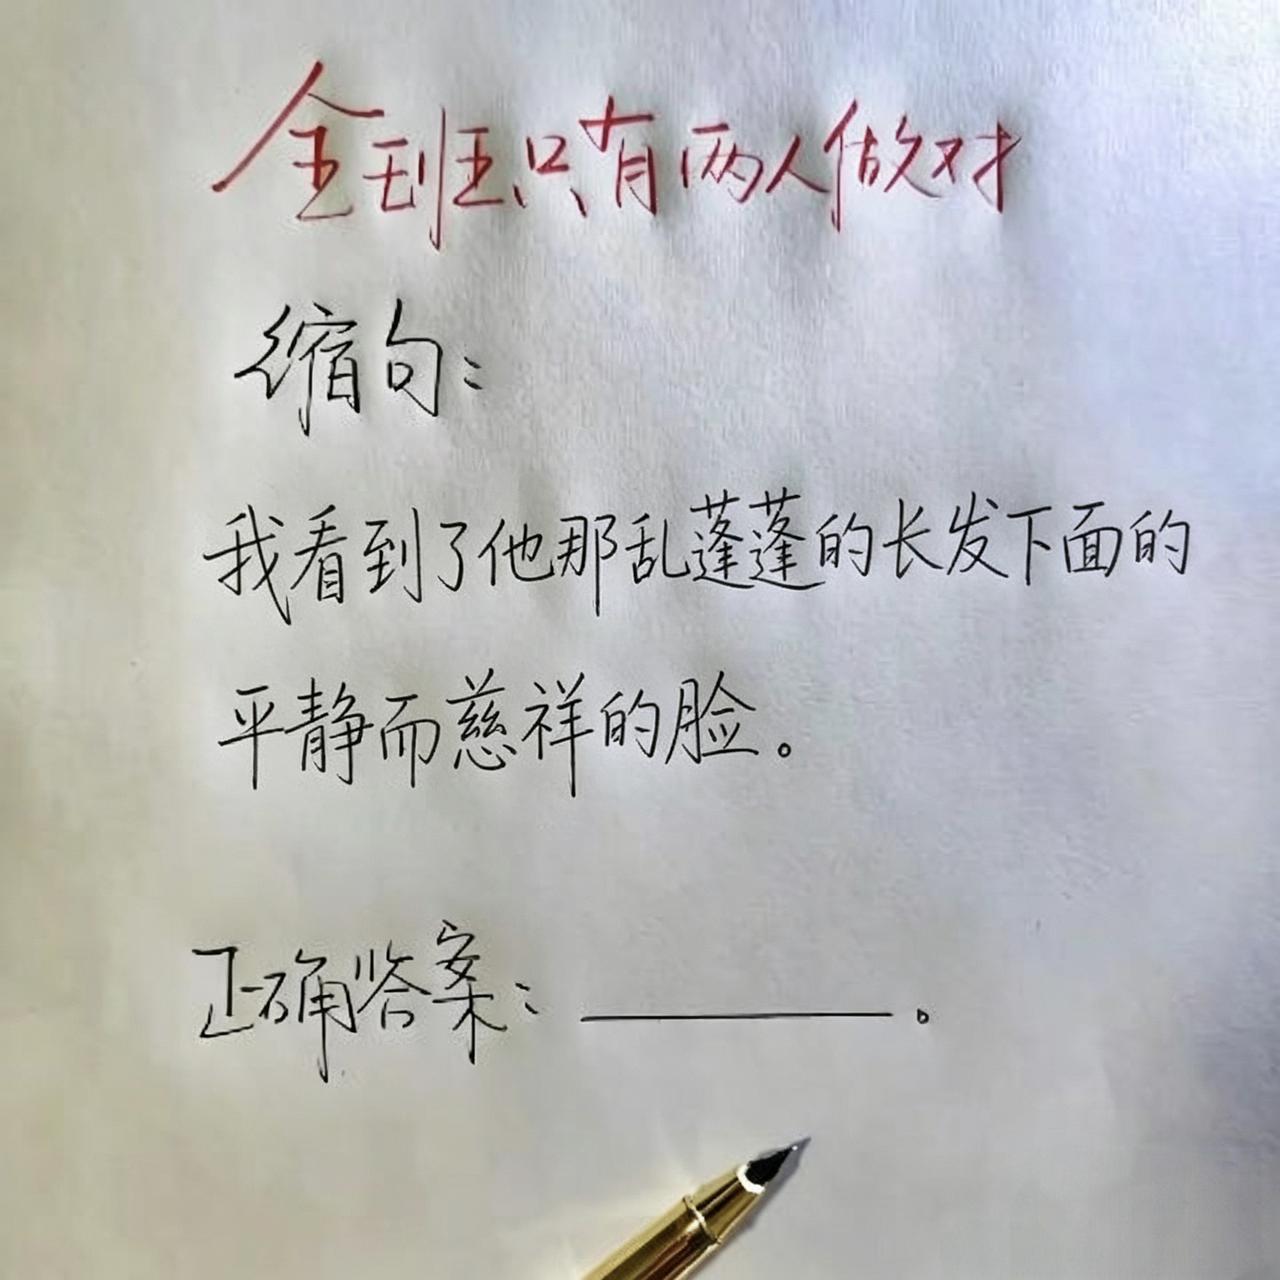 全班只有两人做对
缩句：
我看到了他那乱蓬蓬的长发下面的
平静而慈祥的脸。
正确答案：________。